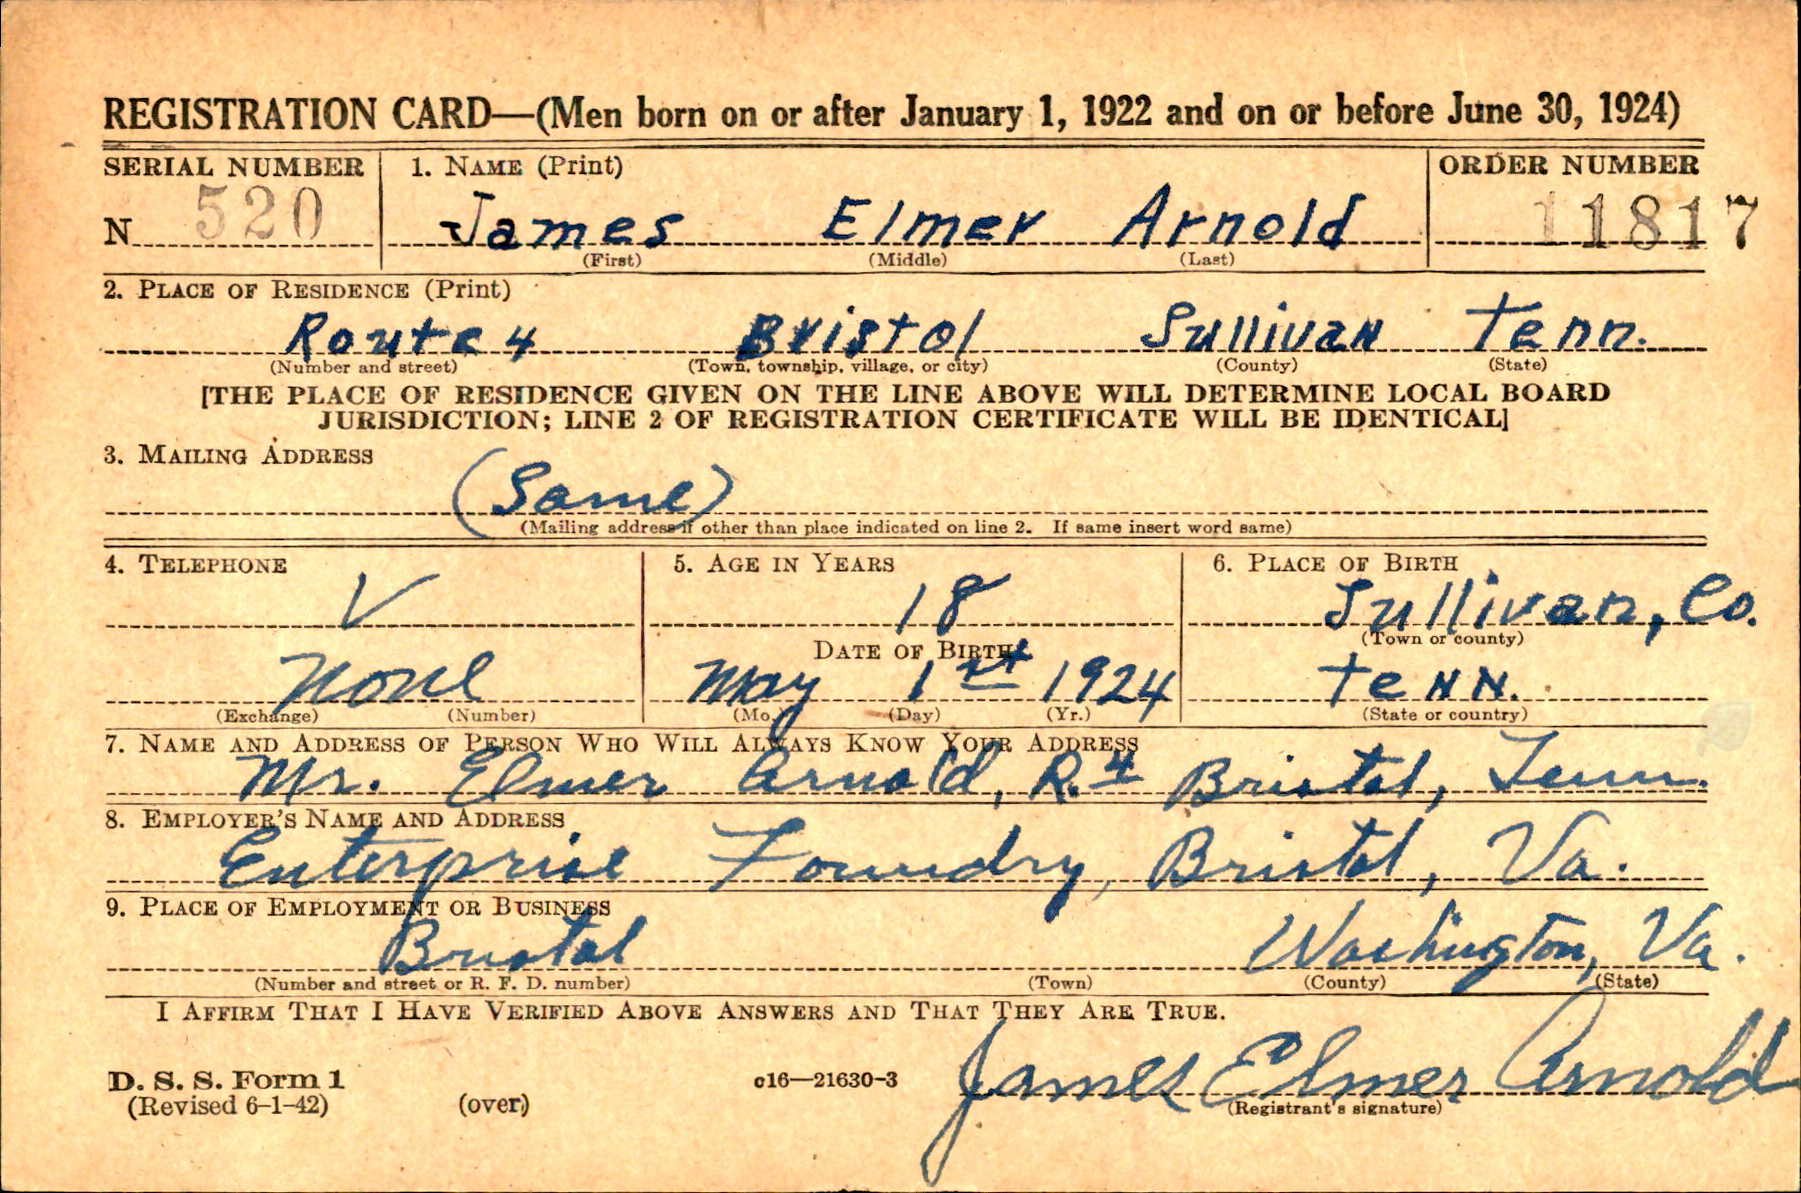 REGISTRATION CARD—(Men born on or after January 1, 1922 and on or before June 30, 1924)
SERIAL NUMBER 1. NAME (Print) ORDER NUMBER
N 520 James Elmer Arnold 11817
(First) (Middle) (Last)
2. PLACE OF RESIDENCE (Print)
Route 4 Bristol Sullivan Tenn.
(Number and street) (Town, township, village, or city) (County) (State)
[THE PLACE OF RESIDENCE GIVEN ON THE LINE ABOVE WILL DETERMINE LOCAL BOARD
JURISDICTION; LINE 2 OF REGISTRATION CERTIFICATE WILL BE IDENTICAL]
3. MAILING ADDRESS
(Same)
(Mailing address if other than place indicated on line 2. If same insert word same)
4. TELEPHONE 5. AGE IN YEARS 6. PLACE OF BIRTH
V 18 Sullivan, Co.
DATE OF BIRTH (Town or county)
None May 1st 1924 Tenn.
(Exchange) (Number) (Mo.) (Day) (Yr.) (State or country)
7. NAME AND ADDRESS OF PERSON WHO WILL ALWAYS KNOW YOUR ADDRESS
Mr. Elmer Arnold, R. 4 Bristol, Tenn.
8. EMPLOYER'S NAME AND ADDRESS
Enterprise Foundry, Bristol, Va.
9. PLACE OF EMPLOYMENT OR BUSINESS
Bristol Washington, Va.
(Number and street or R. F. D. number) (Town) (County) (State)
I AFFIRM THAT I HAVE VERIFIED ABOVE ANSWERS AND THAT THEY ARE TRUE.
D. S. S. Form 1 c16—21630-3 James Elmer Arnold
(Revised 6-1-42) (over) (Registrant's signature)